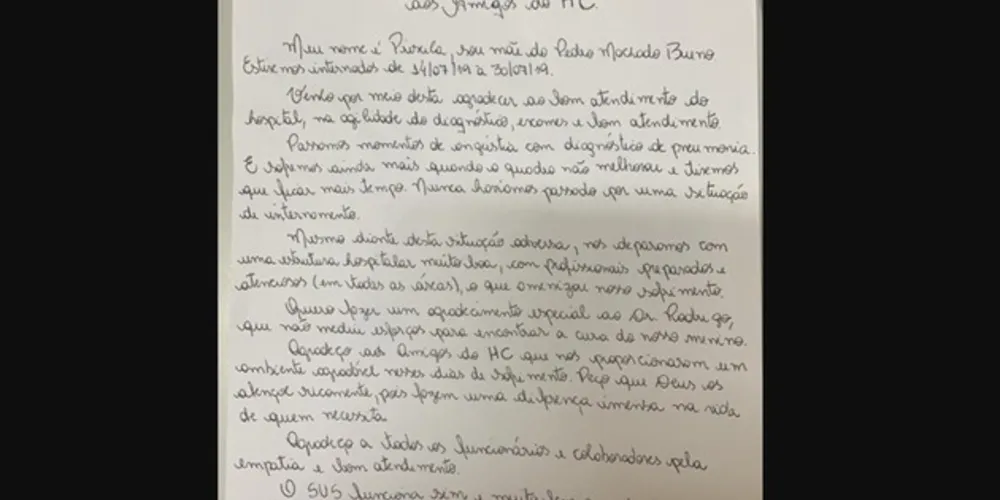 aos Amigos do HC.
Meu nome é Priscila, sou mãe do Pedro Machado Bueno.
Estivemos internados de 14/07/19 a 30/07/19.
Venho por meio desta agradecer ao bom atendimento do
hospital, na agilidade do diagnóstico, exames e bom atendimento.
Passamos momentos de angústia com diagnóstico de pneumonia.
E sofremos ainda mais quando o quadro não melhorou e tivemos
que ficar mais tempo. Nunca havíamos passado por uma situação
de internamento.
Mesmo diante desta situação adversa, nos deparamos com
uma estrutura hospitalar muito boa, com profissionais preparados e
atenciosos (em todas as áreas), o que amenizou nosso sofrimento.
Quero fazer um agradecimento especial ao Dr. Rodrigo,
que não mediu esforços para encontrar a cura do nosso menino.
Agradeço aos Amigos do HC que nos proporcionaram um
ambiente agradável nesses dias de sofrimento. Peço que Deus os
abençoe ricamente, pois fazem uma diferença imensa na vida
de quem necessita.
Agradeço a todos os funcionários e colaboradores pela
empatia e bom atendimento.
O SUS funciona sim e muito